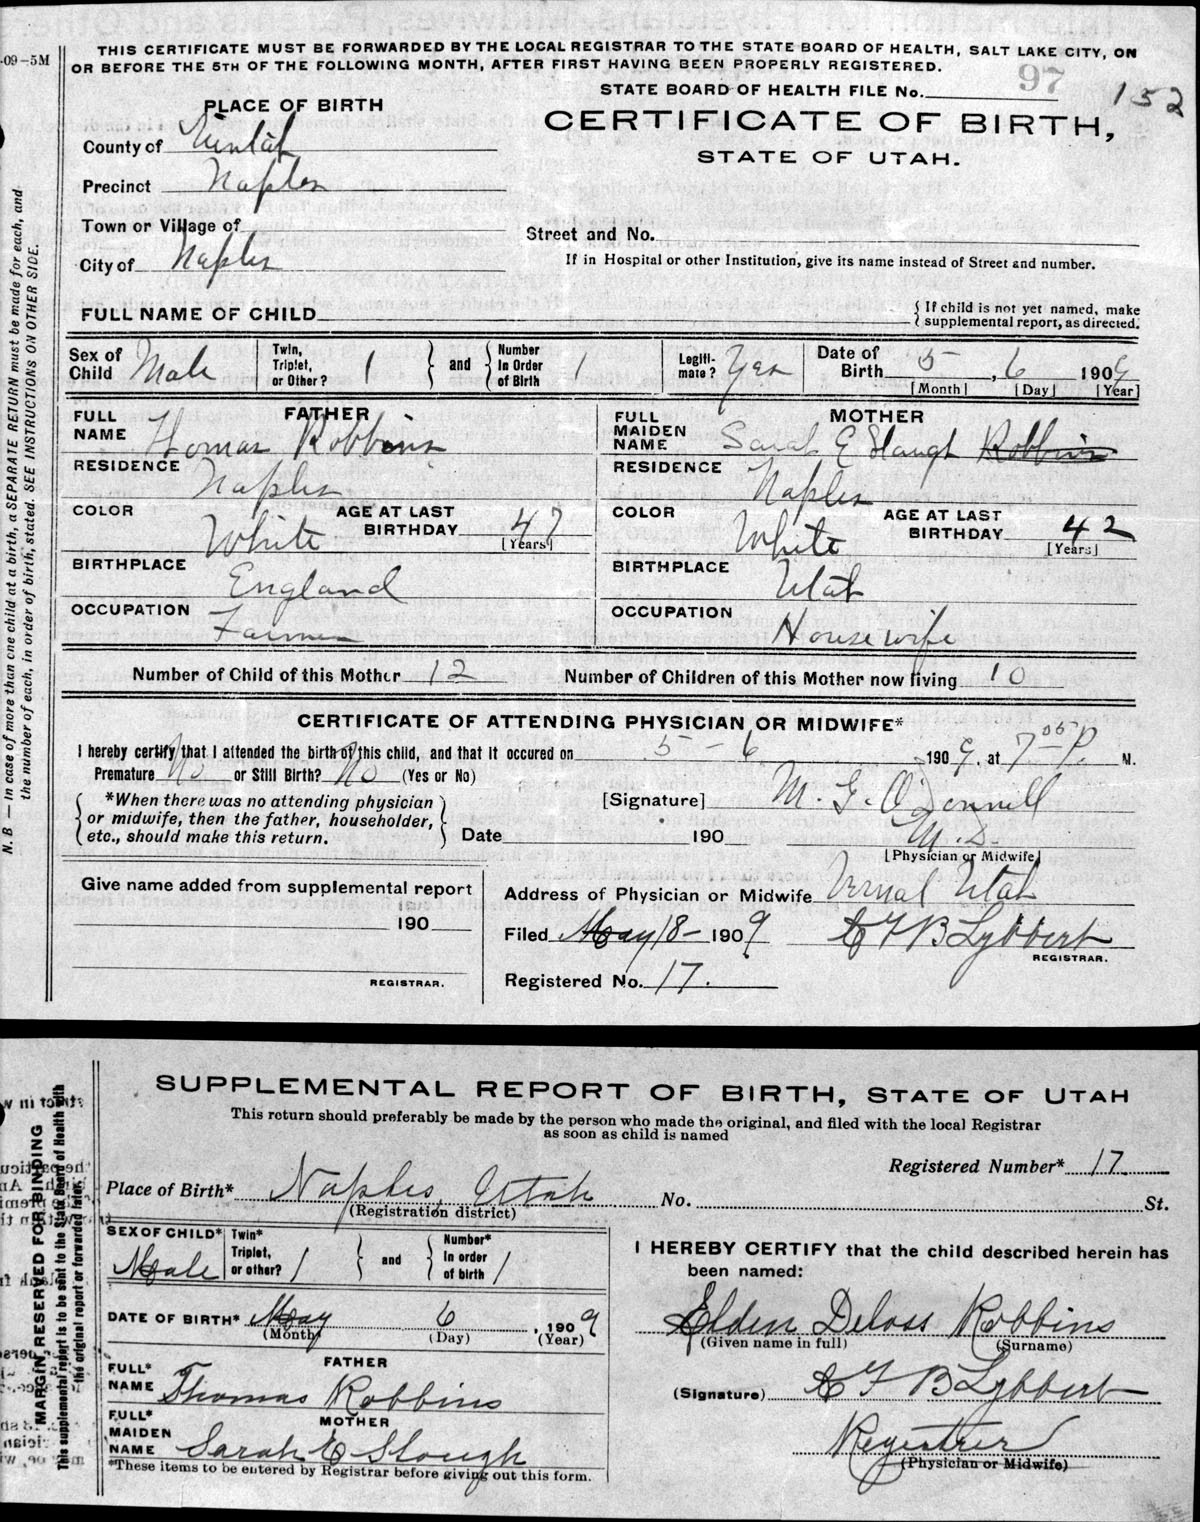 -09-5M
THIS CERTIFICATE MUST BE FORWARDED BY THE LOCAL REGISTRAR TO THE STATE BOARD OF HEALTH, SALT LAKE CITY, ON
OR BEFORE THE 5TH OF THE FOLLOWING MONTH, AFTER FIRST HAVING BEEN PROPERLY REGISTERED.
STATE BOARD OF HEALTH FILE No. 97
152
PLACE OF BIRTH
CERTIFICATE OF BIRTH,
STATE OF UTAH.
County of Uintah
Precinct Naples
Town or Village of
Street and No.
City of Naples
If in Hospital or other Institution, give its name instead of Street and number.
FULL NAME OF CHILD
{ If child is not yet named, make
supplemental report, as directed.
N. B — In case of more than one child at a birth, a SEPARATE RETURN must be made for each, and
the number of each, in order of birth, stated. SEE INSTRUCTIONS ON OTHER SIDE.
Sex of Child Male
Twin, Triplet, or Other? 1
and
Number In Order of Birth 1
Legitimate? Yes
Date of Birth 5, 6 1909
[Month] [Day] [Year]
FATHER
FULL NAME Thomas Robbins
RESIDENCE Naples
COLOR White
AGE AT LAST BIRTHDAY 47
[Years]
BIRTHPLACE England
OCCUPATION Farmer
MOTHER
FULL MAIDEN NAME Sarah E Slaugh Robbins
RESIDENCE Naples
COLOR White
AGE AT LAST BIRTHDAY 42
[Years]
BIRTHPLACE Utah
OCCUPATION Housewife
Number of Child of this Mother 12
Number of Children of this Mother now living 10
CERTIFICATE OF ATTENDING PHYSICIAN OR MIDWIFE*
I hereby certify that I attended the birth of this child, and that it occured on 5 - 6 1909, at 7 05 P. M.
Premature No or Still Birth? No (Yes or No)
*When there was no attending physician
or midwife, then the father, householder,
etc., should make this return.
[Signature] M. G. O'Donnell
M. D.
Date 190
[Physician or Midwife]
Give name added from supplemental report
190
REGISTRAR.
Address of Physician or Midwife Vernal Utah
Filed May 18- 1909
C F B Lybbert
REGISTRAR.
Registered No. 17.
SUPPLEMENTAL REPORT OF BIRTH, STATE OF UTAH
This return should preferably be made by the person who made the original, and filed with the local Registrar
as soon as child is named
MARGIN RESERVED FOR BINDING
This supplemental report is to be sent to the State Board of Health with
the original report or forwarded later.
Registered Number* 17
Place of Birth* Naples, Utah No. St.
(Registration district)
SEX OF CHILD* Male
Twin* Triplet, or other? 1
and
Number* In order of birth 1
DATE OF BIRTH* May 6, 1909
(Month) (Day) (Year)
FATHER
FULL* NAME Thomas Robbins
MOTHER
FULL* MAIDEN NAME Sarah E Slough
*These items to be entered by Registrar before giving out this form.
I HEREBY CERTIFY that the child described herein has
been named:
Elden Deloss Robbins
(Given name in full) (Surname)
(Signature) C F B Lybbert
Registrer
(Physician or Midwife)